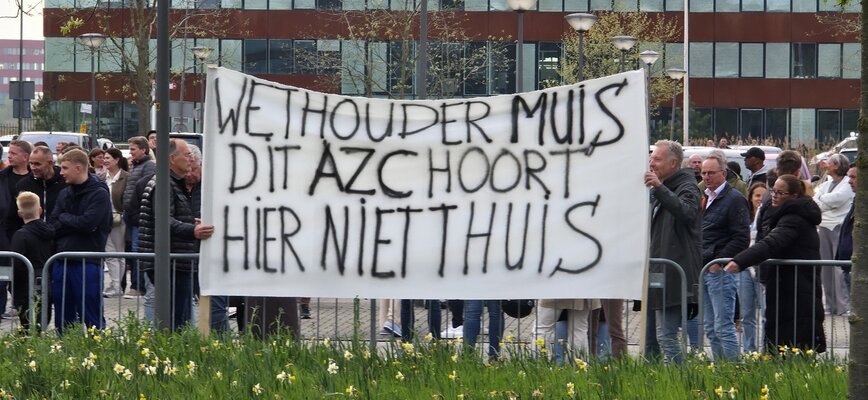 WETHOUDER MUIS
DIT AZC HOORT
HIER NIET THUIS